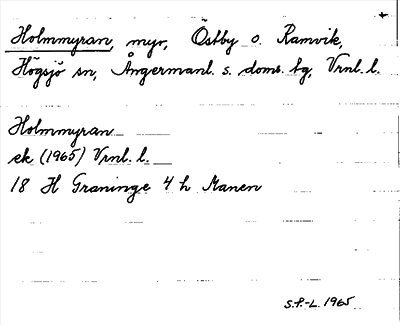 Holmmyran, myr, Östby o. Ramvik,
Högsjö sn, Ångermanl. s. doms. tg, Vrnl. l.
Holmmyran
ek (1965) Vrnl. l.
18 H Graninge 4 h Manen
S.P.-L. 1965